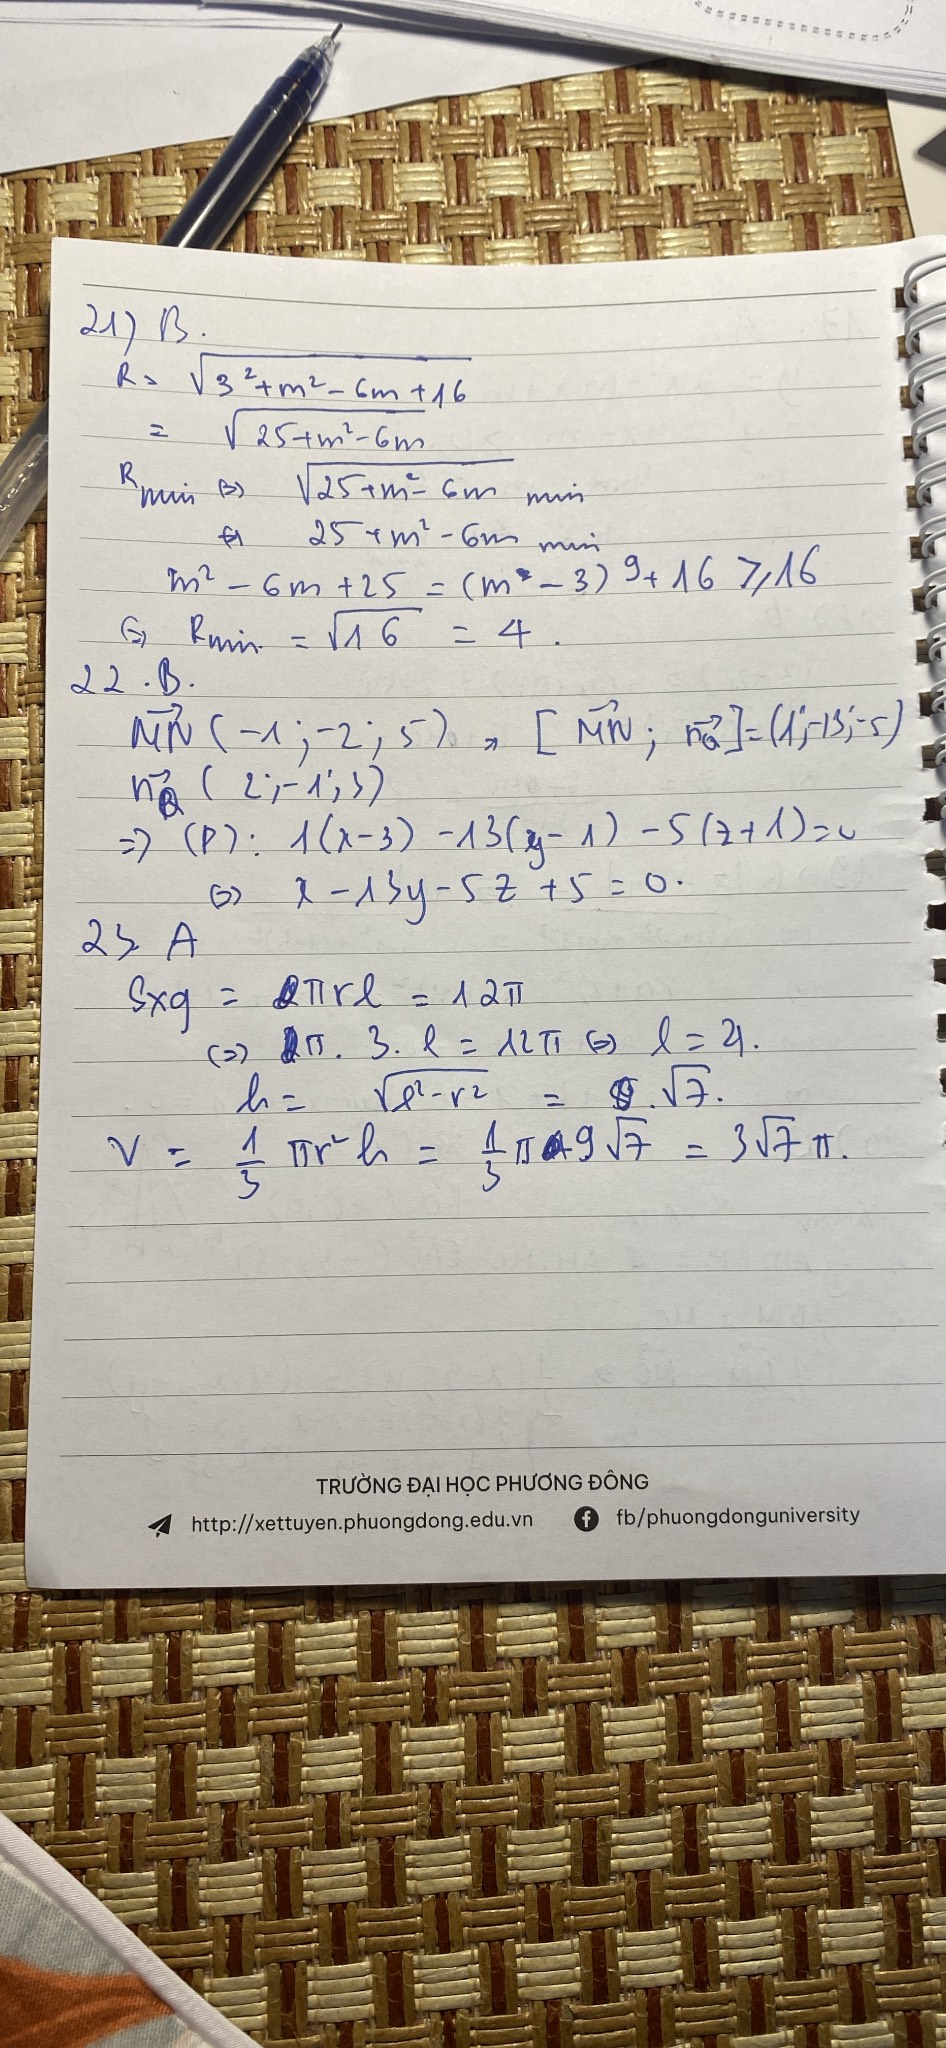 21) B.
R = √3²+m²-6m+16
= √25+m²-6m
Rmin ⇔ √25+m²-6m min
⇔ 25+m²-6m min
m² - 6m + 25 = (m - 3)² + 16 ≥ 16
⇔ Rmin = √16 = 4.
22. B.
MN→ (-1; -2; 5) ⇒ [MN→; nQ→] = (1; -13; -5)
nQ→ (2; -1; 3)
=> (P): 1(x-3) -13(y-1) -5(z+1)=0
⇔ x -13y -5z +5 = 0.
23 A
Sxq = πrl = 12π
(=) π. 3. l = 12π ⇔ l = 4.
h = √l²-r² = √7.
V = 1/3 πr²h = 1/3 π 9√7 = 3√7 π.
TRƯỜNG ĐẠI HỌC PHƯƠNG ĐÔNG
http://xettuyen.phuongdong.edu.vn fb/phuongdonguniversity